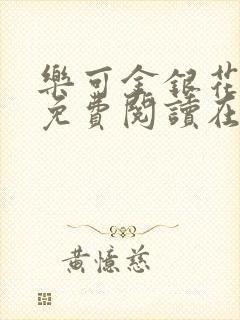 樂可金銀花
免費閱讀在
黃憶慈